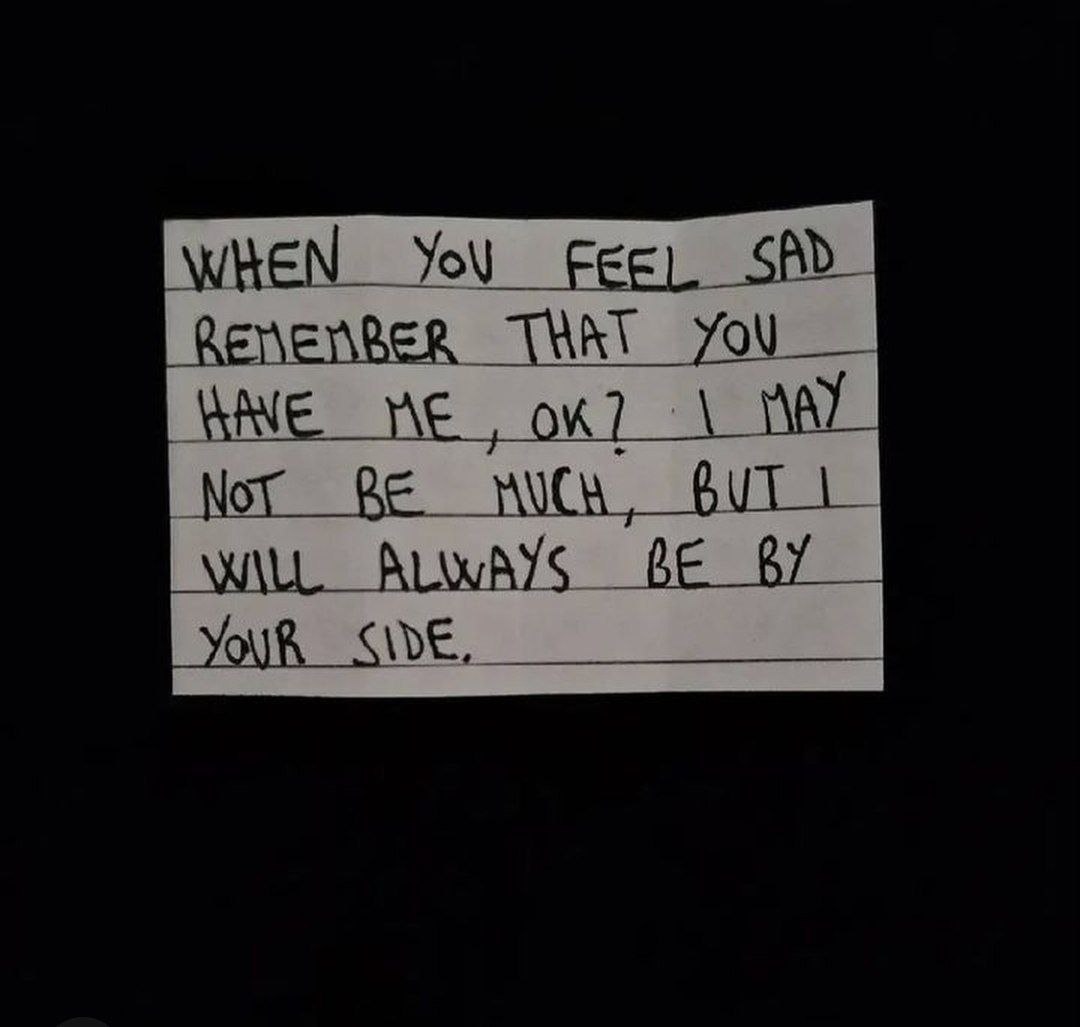 WHEN YOU FEEL SAD
REMEMBER THAT YOU
HAVE ME, OK? I MAY
NOT BE MUCH, BUT I
WILL ALWAYS BE BY
YOUR SIDE.